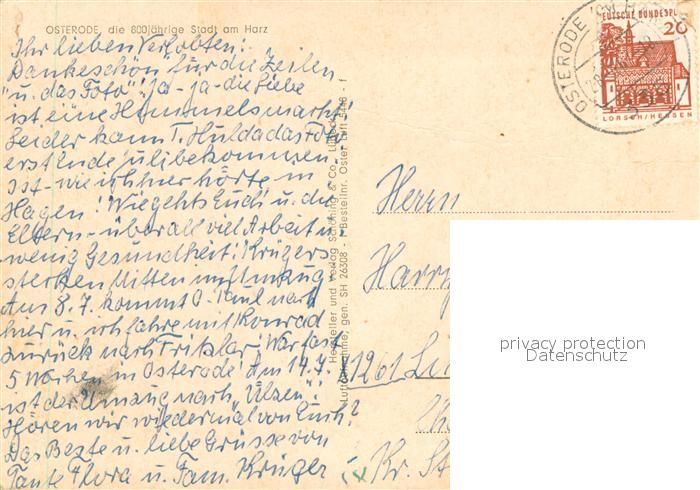 OSTERODE, die 800jährige Stadt am Harz
Ihr lieben Verlobten!
Dankeschön für die Zeilen
"u. das Foto"! Ja-ja-die Liebe
ist eine Himmelsmacht!
Leider kann T. Hulda das Foto
erst Ende Juli bekommen.
Ist-wie ich hier hörte in
Hagen! Wie geht's Euch u. die
Eltern-überall viel Arbeit u.
wenig Gesundheit! Krügers
stecken mitten im Umzug
Am 8.7. kommt O. Paul nach
hier u. ich fahre mit Konrad
zurück nach Fritzlar! War fast
5 Wochen in Osterode! Am 14.7.
ist der Umzug nach "Ülzen"!
Hören wir wieder mal von Euch?
Das Beste u. liebe Grüsse von
Tante Flora u. Fam. Krüger
Hersteller und Verlag Schöning & Co.
gen. SH 26308 - Bestellnr. Oster
DEUTSCHE BUNDESPOST
20
LORSCH/HESSEN
OSTERODE
Herrn
Harry
1261
Kr. St
privacy protection
Datenschutz